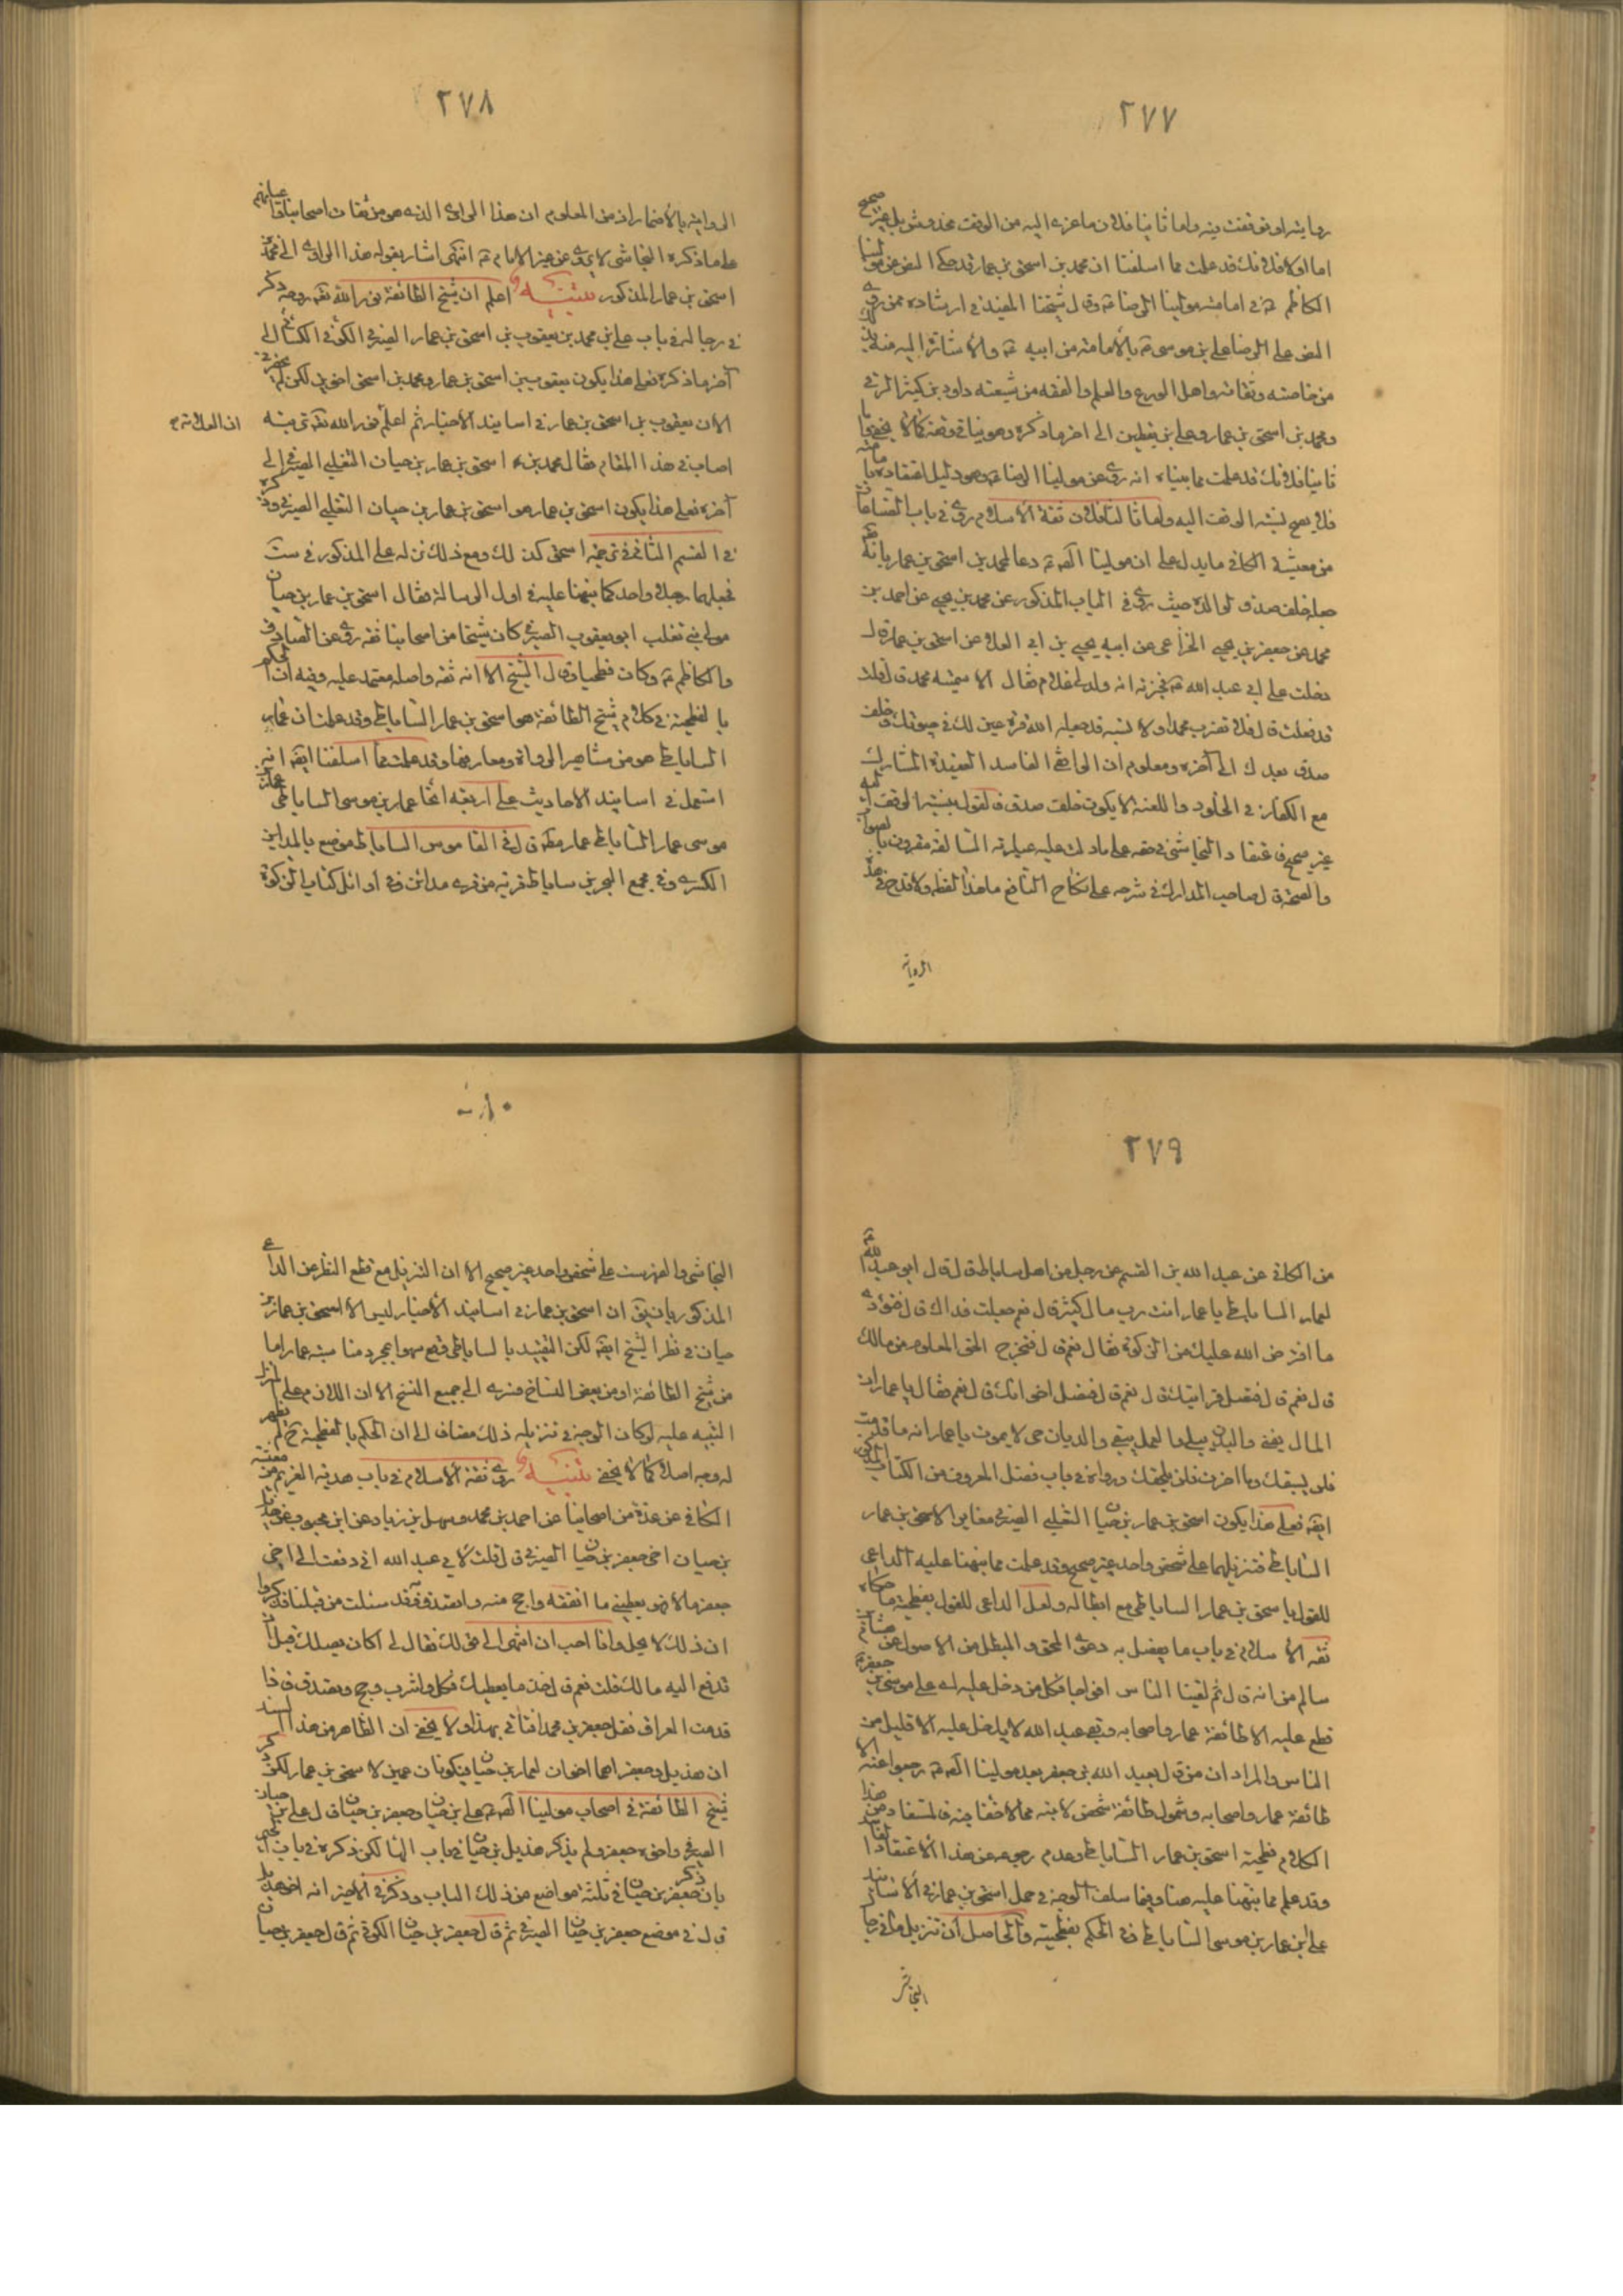 ٢٧٧
روايته او توقفت فيه واما ثانيا فلان ما عزى اليه من الوقف مخدوش بل غير صحيح
اما اولا فلانك قد علمت مما اسلفنا ان محمد بن اسحق بن عمار قد حكى النص عن مولينا
الكاظم ع في امامة مولينا الرضا ع وقال شيخنا المفيد في ارشاده ممن روى
النص على الرضا علي بن موسى ع بالامامة من ابيه ع والاشارة اليه منه بذلك
من خاصته وثقاته واهل الورع والعلم والفقه من شيعته داود بن كثير الرقي
ومحمد بن اسحق بن عمار وعلي بن يقطين الى اخر ما ذكره وهو ينافي وقفه كما لا يخفى واما
ثانيا فلانك قد علمت مما بيناه انه روى عن مولينا الرضا ع وهو دليل اعتقاده بامامته
فلا يصح نسبة الوقف اليه واما ثالثا فلان ثقة الاسلام روى في باب الصناعات
من معيشة الكافي ما يدل على ان مولينا الصادق ع دعا لمحمد بن اسحق بن عمار بانه
جعله خلف صدق لوالده حيث روى في الباب المذكور عن محمد بن يحيى عن احمد بن
محمد عن جعفر بن يحيى الخزاعي عن ابيه يحيى بن ابي العلا عن اسحق بن عمار قال
دخلت على ابي عبد الله ع فخبرته انه ولد لي غلام فقال الا سميته محمد قال قلت
قد فعلت قال فلا تضرب محمدا ولا تسبه قد جعله الله قرة عين لك في حيوتك وخلف
صدق بعدك الى آخره ومعلوم ان الواقفي الفاسد العقيدة المشارك
مع الكفار في الخلود واللعنة لا يكون خلف صدق فالقول بنسبة الوقف اليه
غير صحيح فاعتقاد النجاشي في حقه على ما دلت عليه عبارته السالفة مقرون بالصواب
والصحة قال صاحب المدارك في شرحه على نكاح النافع ما هذا لفظه ولا قدح في هذه
الرواية
٢٧٨
الرواية بالاضمار اذ من المعلوم ان هذا الراوي الذي هو من ثقات اصحابنا واعيانهم
على ما ذكره النجاشي لا يروي عن غير الامام ع انتهى اشار بقوله هذا الراوي الى محمد بن
اسحق بن عمار المذكور تنبيه اعلم ان شيخ الطائفة نور الله تعالى روحه ذكر
في رجاله في باب علي بن محمد بن يعقوب بن اسحق بن عمار الصيرفي الكوفي الكسائي الى
آخر ما ذكره فعلى هذا يكون يعقوب بن اسحق بن عمار ومحمد بن اسحق اخوين لكن لم يحضرني
الآن يعقوب بن اسحق بن عمار في اسانيد الاخبار ثم اعلم ان العلامة نور الله تعالى تربته
اصاب في هذا المقام فقال محمد بن اسحق بن عمار بن حيان التغلبي الصيرفي الى
آخره فعلى هذا يكون اسحق بن عمار هو اسحق بن عمار بن حيان التغلبي الصيرفي وقد ذكره
في القسم الثاني في ترجمة اسحق كذلك ومع ذلك نزله على المذكور في ست
فجعلهما رجلا واحدا كما نبهنا عليه في اول الرسالة فقال اسحق بن عمار بن حيان
مولى بني تغلب ابو يعقوب الصيرفي كان شيخا من اصحابنا ثقة روى عن الصادق
والكاظم ع وكان فطحيا وقال الشيخ الا انه ثقة واصله معتمد عليه وفيه ان المحكوم
بالفطحية في كلام شيخ الطائفة هو اسحق بن عمار الساباطي وقد علمت ان عمار
الساباطي هو من مشاهير الرواة ومعاريفها وقد علمت مما اسلفنا ايضا انه
استعمل في اسانيد الاحاديث على اربعة انحاء عمار بن موسى الساباطي عمار بن
موسى عمار الساباطي عمار مطلقا قال في القاموس الساباط موضع بالمداين
الكسرى وفي مجمع البحرين ساباط قرية من قرى مدائن وفي اوائل كتاب الزكوة
٢٧٩
من الكافي عن عبد الله بن القسم عن رجل من اهل ساباط قال قال ابو عبد الله ع
لعمار الساباطي يا عمار انت رب مال كثير قال نعم جعلت فداك قال فتؤدي
ما افترض الله عليك من الزكوة فقال نعم قال فتخرج الحق المعلوم من مالك
قال نعم قال فتصل قرابتك قال نعم قال فتصل اخوانك قال نعم فقال يا عمار ان
المال يفنى والبدن يبلى والعمل يبقى والديان حي لا يموت يا عمار انه ما قدمت
فلن يسبقك وما اخرت فلن يلحقك ورواه في باب فضل المعروف من الكتاب المذكور
ايضا فعلى هذا يكون اسحق بن عمار بن حيان التغلبي الصيرفي مغايرا لاسحق بن عمار
الساباطي فتنزيلهما على شخص واحد غير صحيح وقد علمت مما نبهنا عليه الداعي
للقول باسحق بن عمار الساباطي مع ابطاله ولعل الداعي للقول بفطحيته ما حكاه
ثقة الاسلام في باب ما يفصل به دعوى المحق والمبطل من الاصول عن هشام بن
سالم من انه قال ثم لقينا الناس افواجا فكل من دخل عليه اي على موسى بن جعفر ع
قطع عليه الا طائفة عمار واصحابه وبقي عبد الله لا يدخل عليه الا قليل من
الناس والمراد ان من قال بعبد الله بن جعفر بعد مولينا الصادق ع رجعوا عنه الا
طائفة عمار واصحابه وشمول طائفة شخص لابنه مما لا خفاء فيه فالمستفاد من هذا
الكلام فطحية اسحق بن عمار الساباطي وعدم رجوعه عن هذا الاعتقاد الفاسد
وقد علم مما نبهنا عليه هنا وفيما سلف الوجه في حمل اسحق بن عمار في الاسانيد
على ابن عمار بن موسى الساباطي وفي الحكم بفطحيته والحاصل ان تنزيل ما في رجال
النجاشي
٢٨٠
النجاشي والفهرست على شخص واحد غير صحيح الا ان التنزيل مع قطع النظر عن الداعي
المذكور بان يقال ان اسحق بن عمار في اسانيد الاخبار ليس الا اسحق بن عمار بن
حيان في نظر الشيخ ايضا لكن التقييد بالساباطي وقع سهوا بمجرد منا سبة عمار اما
من شيخ الطائفة او من بعض النساخ فسرى الى جميع النسخ الا ان اللازم على المنزل
التنبيه عليه لو كان الوجه في تنزيله ذلك مضافا الى ان الحكم بالفطحية ح لم يظهر
له وجه اصلا كما لا يخفى تنبيه روى ثقة الاسلام في باب هدية الغريم من معيشة
الكافي عن عدة من اصحابنا عن احمد بن محمد وسهل بن زياد عن ابن محبوب عن هذيل
بن حيان اخي جعفر بن حيان الصيرفي قال قلت لابي عبد الله اني دفعت الى اخي
جعفر مالا فهو يعطيني ما انفقه واحج منه واتصدق وقد سئلت من قبلنا فذكروا
ان ذلك لا يحل وانا احب ان انتهي الى قولك فقال لي اكان يصلك قبل ان
تدفع اليه مالك قلت نعم قال خذ ما يعطيك فكل واشرب وحج وتصدق فاذا
قدمت العراق فقل جعفر بن محمد افتاني بهذا ولا يخفى ان الظاهر من هذا السند
ان هذيل وجعفر هما اخوان لعمار بن حيان فيكونان عمين لاسحق بن عمار لكن ذكر
شيخ الطائفة في اصحاب مولينا الصادق ع علي بن حيان وجعفر بن حيان قال علي بن حيان
الصيرفي واخوه جعفر ولم يذكر هذيل بن حيان في باب الهاء لكن ذكره في باب الجيم
بان ذكر جعفر بن حيان في ثلثة مواضع من ذلك الباب وذكر في الاخير انه اخو هذيل
قال في موضع جعفر بن حيان الصيرفي ثم قال جعفر بن حيان الكوفي ثم قال جعفر بن حيان